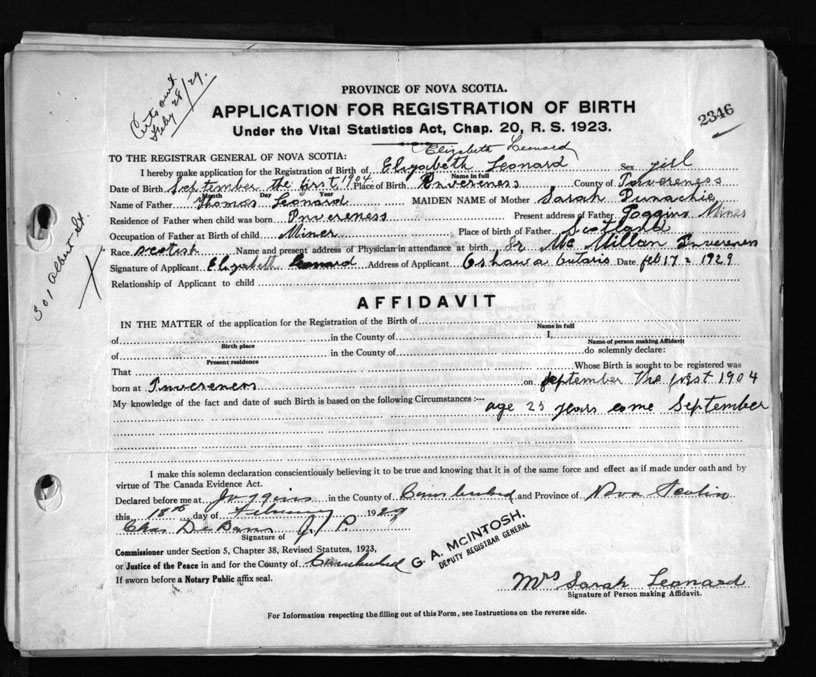 Certs out
Feby 28/29.
PROVINCE OF NOVA SCOTIA.
2346
APPLICATION FOR REGISTRATION OF BIRTH
Under the Vital Statistics Act, Chap. 20, R. S. 1923.
Elizabeth Leonard
TO THE REGISTRAR GENERAL OF NOVA SCOTIA:
I hereby make application for the Registration of Birth of Elizabeth Leonard Sex girl
Name in full
Date of Birth September the first 1904 Place of Birth Inverness County of Inverness
Month Day Year
Name of Father Thomas Leonard MAIDEN NAME of Mother Sarah
Residence of Father when child was born Inverness Present address of Father Joggins Mines
Occupation of Father at Birth of child Miner Place of birth of Father Scotland
Race scotish Name and present address of Physician in attendance at birth Dr Mc Millan Inverness
Signature of Applicant Elizabeth Leonard Address of Applicant Oshawa Ontario Date feb 17 1929
Relationship of Applicant to child
301 Albert St.
AFFIDAVIT
IN THE MATTER of the application for the Registration of the Birth of
Name in full
of in the County of I,
Birth place Name of person making Affidavit
of in the County of do solemnly declare:
Present residence
That Whose Birth is sought to be registered was
born at Inverness on september the first 1904
My knowledge of the fact and date of such Birth is based on the following Circumstances :— age 25 years come September
I make this solemn declaration conscientiously believing it to be true and knowing that it is of the same force and effect as if made under oath and by
virtue of The Canada Evidence Act.
Declared before me at Joggins in the County of Cumberland and Province of Nova Scotia
this 18th day of February 1929
Chas J. P.
Signature of
Commissioner under Section 5, Chapter 38, Revised Statutes, 1923,
or Justice of the Peace in and for the County of Cumberland
If sworn before a Notary Public affix seal.
G. A. McINTOSH,
DEPUTY REGISTRAR GENERAL
Mrs Sarah Leonard
Signature of Person making Affidavit.
For Information respecting the filling out of this Form, see Instructions on the reverse side.